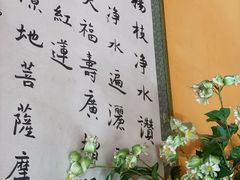 楊枝淨水讚
淨水遍灑
天福壽廣增
紅蓮
地菩薩摩